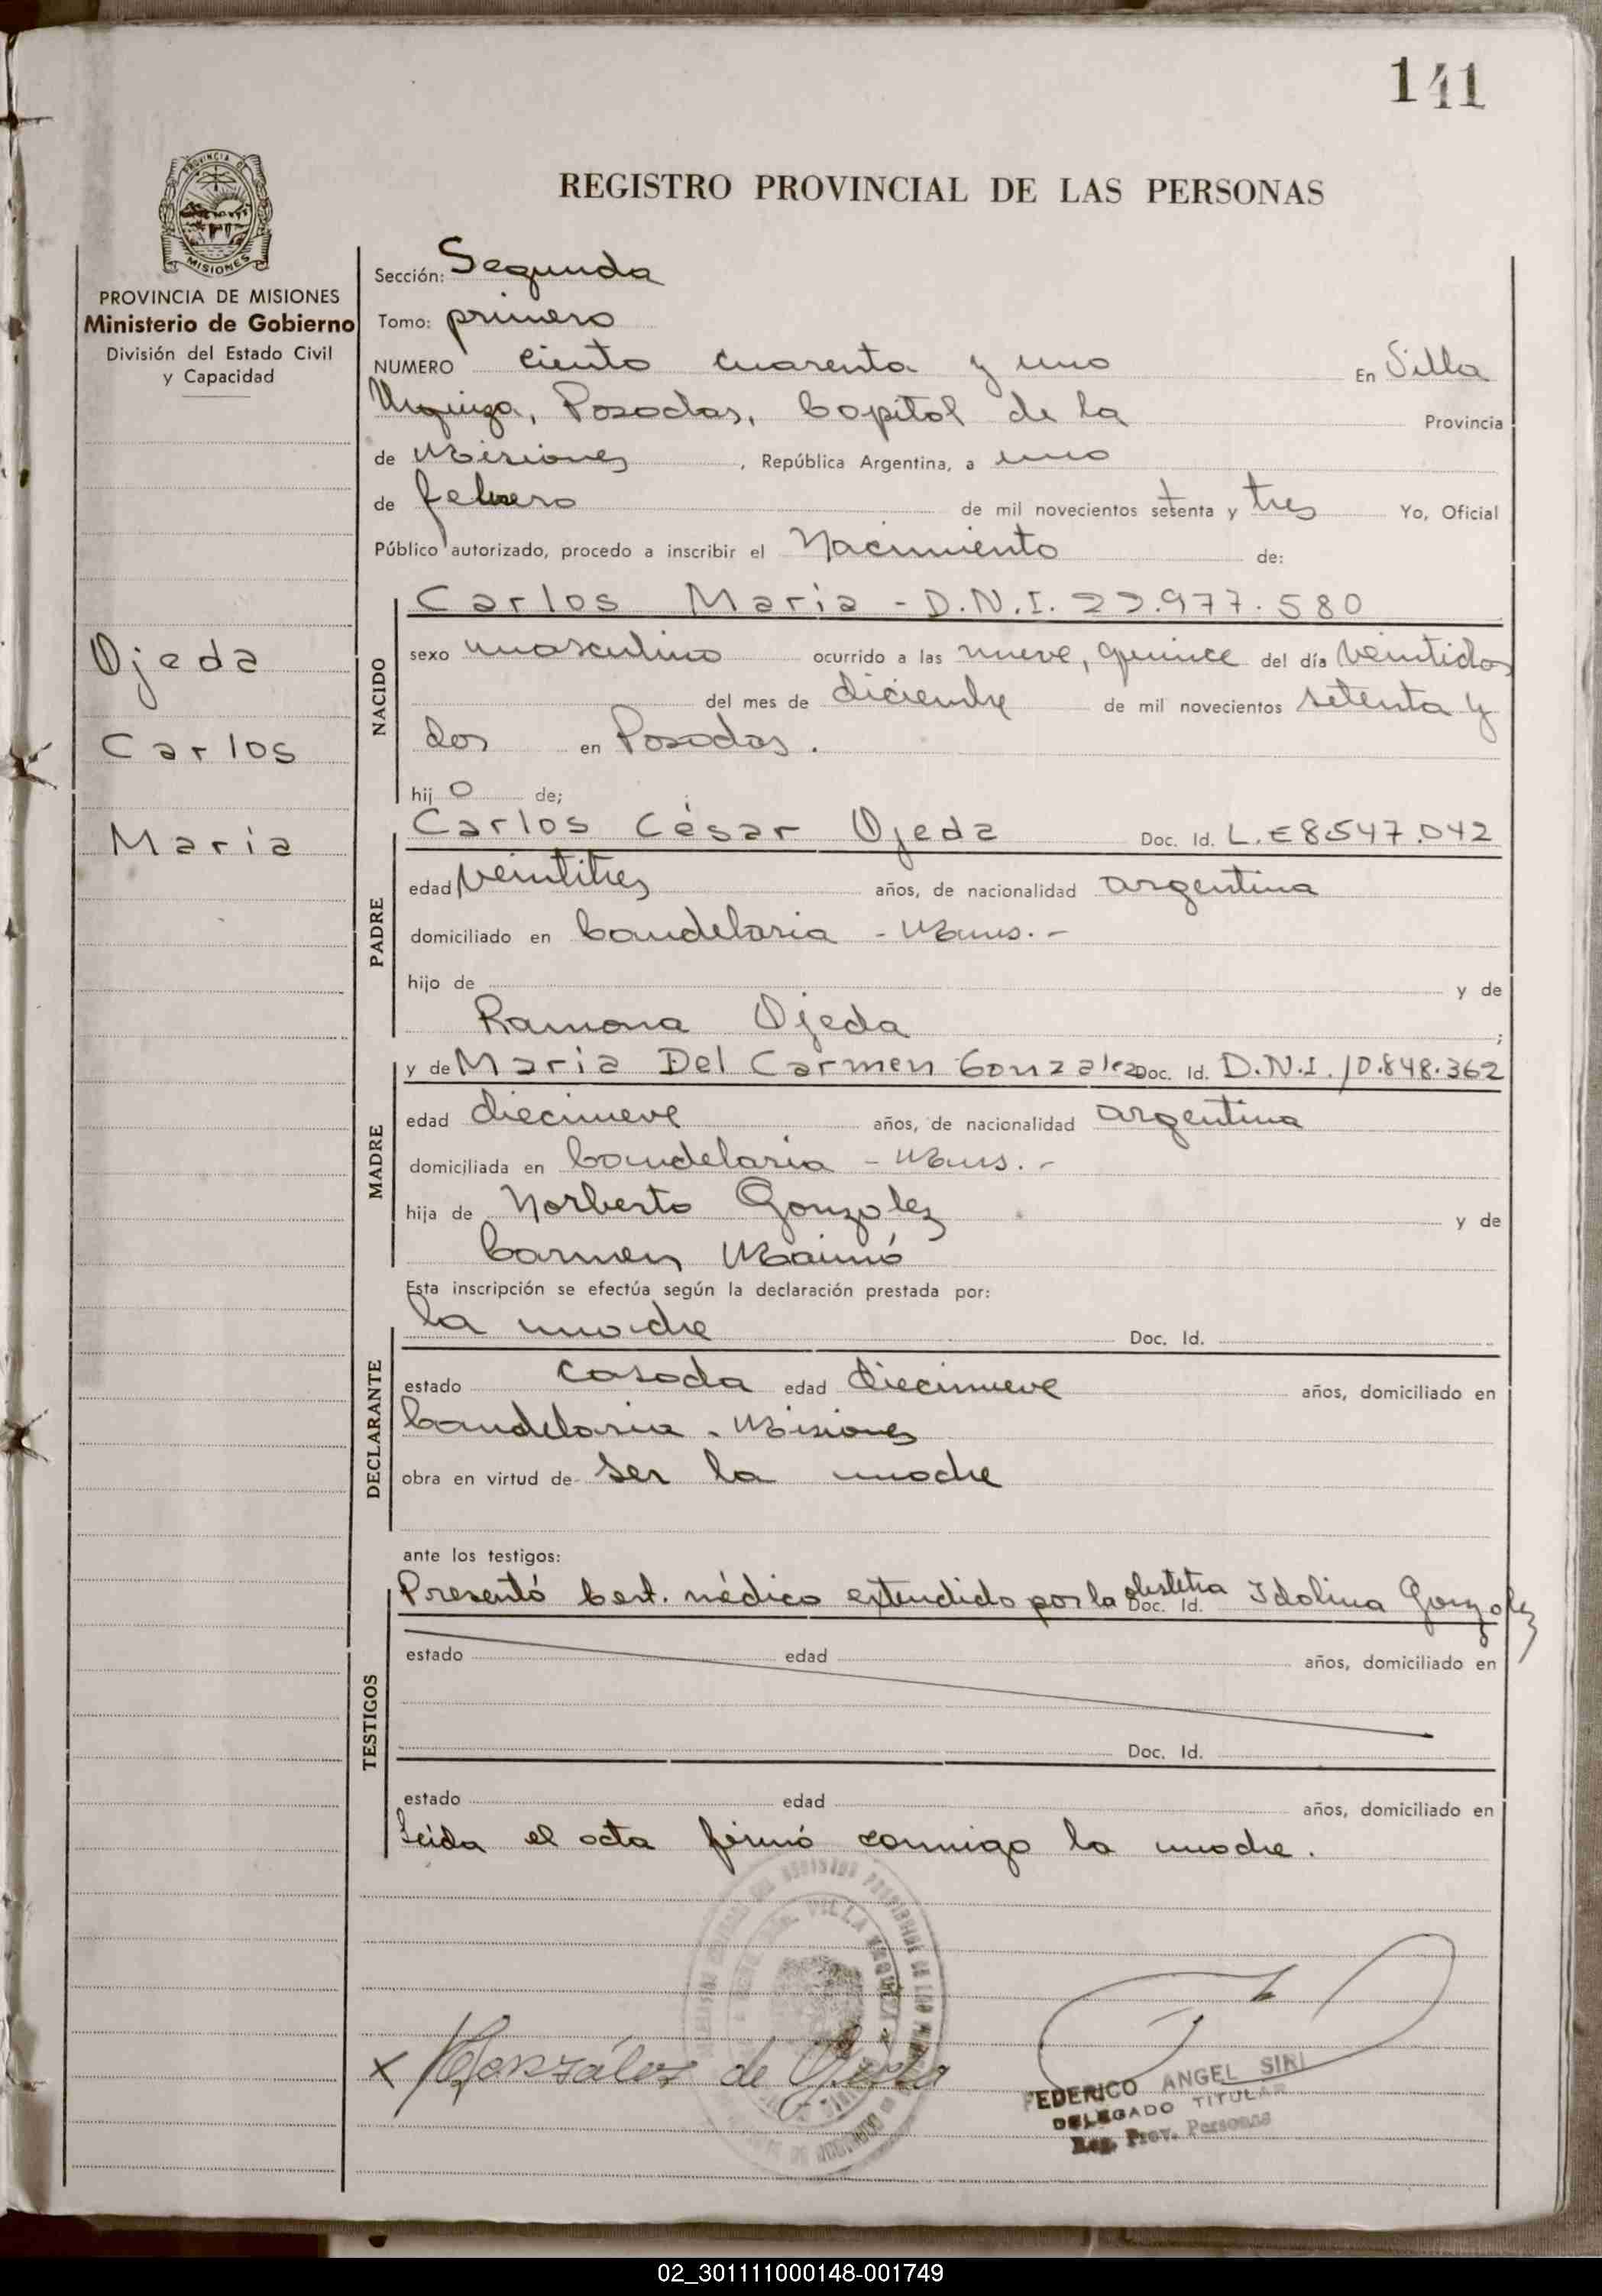 141
REGISTRO PROVINCIAL DE LAS PERSONAS
PROVINCIA DE MISIONES
MISIONES
PROVINCIA DE MISIONES
Ministerio de Gobierno
División del Estado Civil
y Capacidad
Ojeda
Carlos
Maria
Sección: Segunda
Tomo: primero
NUMERO ciento cuarenta y uno En Villa
Urquiza, Posadas, Capital de la Provincia
de Misiones, República Argentina, a uno
de febrero de mil novecientos setenta y tres Yo, Oficial
Público autorizado, procedo a inscribir el Nacimiento de:
NACIDO
Carlos Maria - D.N.I. 22.977.580
sexo masculino ocurrido a las nueve, quince del día veintidos
del mes de diciembre de mil novecientos setenta y
dos en Posadas.
hijo de;
PADRE
Carlos César Ojeda Doc. Id. L.E 8.547.042
edad veintitres años, de nacionalidad argentina
domiciliado en Candelaria - Mnes. -
hijo de y de
Ramona Ojeda ;
MADRE
y de Maria Del Carmen Gonzalez Doc. Id. D.N.I. 10.848.362
edad diecinueve años, de nacionalidad argentina
domiciliada en Candelaria - Mnes. -
hija de Norberto Gonzalez y de
Carmen Maimó
Esta inscripción se efectúa según la declaración prestada por:
DECLARANTE
la madre Doc. Id.
estado casada edad diecinueve años, domiciliado en
Candelaria - Misiones
obra en virtud de ser la madre
ante los testigos:
TESTIGOS
Presentó Cert. médico extendido por la obstetra Doc. Id. Idolina Gonzalez
estado edad años, domiciliado en
Doc. Id.
estado edad años, domiciliado en
Leida el acta firmó conmigo la madre.
VILLA URQUIZA
x González de Ojeda
FEDERICO ANGEL SIRI
DELEGADO TITULAR
Reg. Prov. Personas
02_301111000148-001749